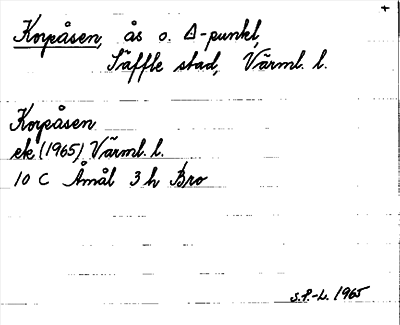 +
Korpåsen, ås o. Δ-punkt,
Säffle stad, Värml. l.
Korpåsen
ek (1965) Värml. l.
10 C Åmål 3 h Bro
S.P.-L. 1965